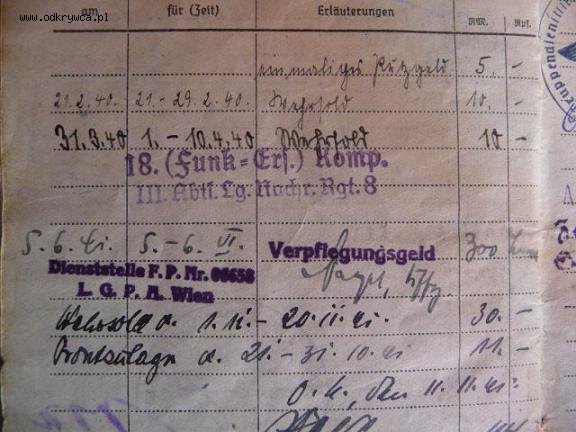 www.odkrywca.pl
am für (Zeit) Erläuterungen RM. Rpf.
einmaliges Putzgeld 5. –
21.2.40. 21.–29.2.40. Wehrsold 10. –
31.3.40 1.–10.4.40 Wehrsold 10 –
18. (Funk-Ers.) Komp.
III. Abtl. Lg. Nachr. Rgt. 8
5.6.41. 5.–6. VI. Verpflegungsgeld
Dienststelle F. P. Nr. 00658
L. G. P. A. Wien
Wehrsold v. 1.11.–20.11.41. 30. –
Frontzulage v. 21.–31.10.41 11. –
O.U., den 11.11.41.